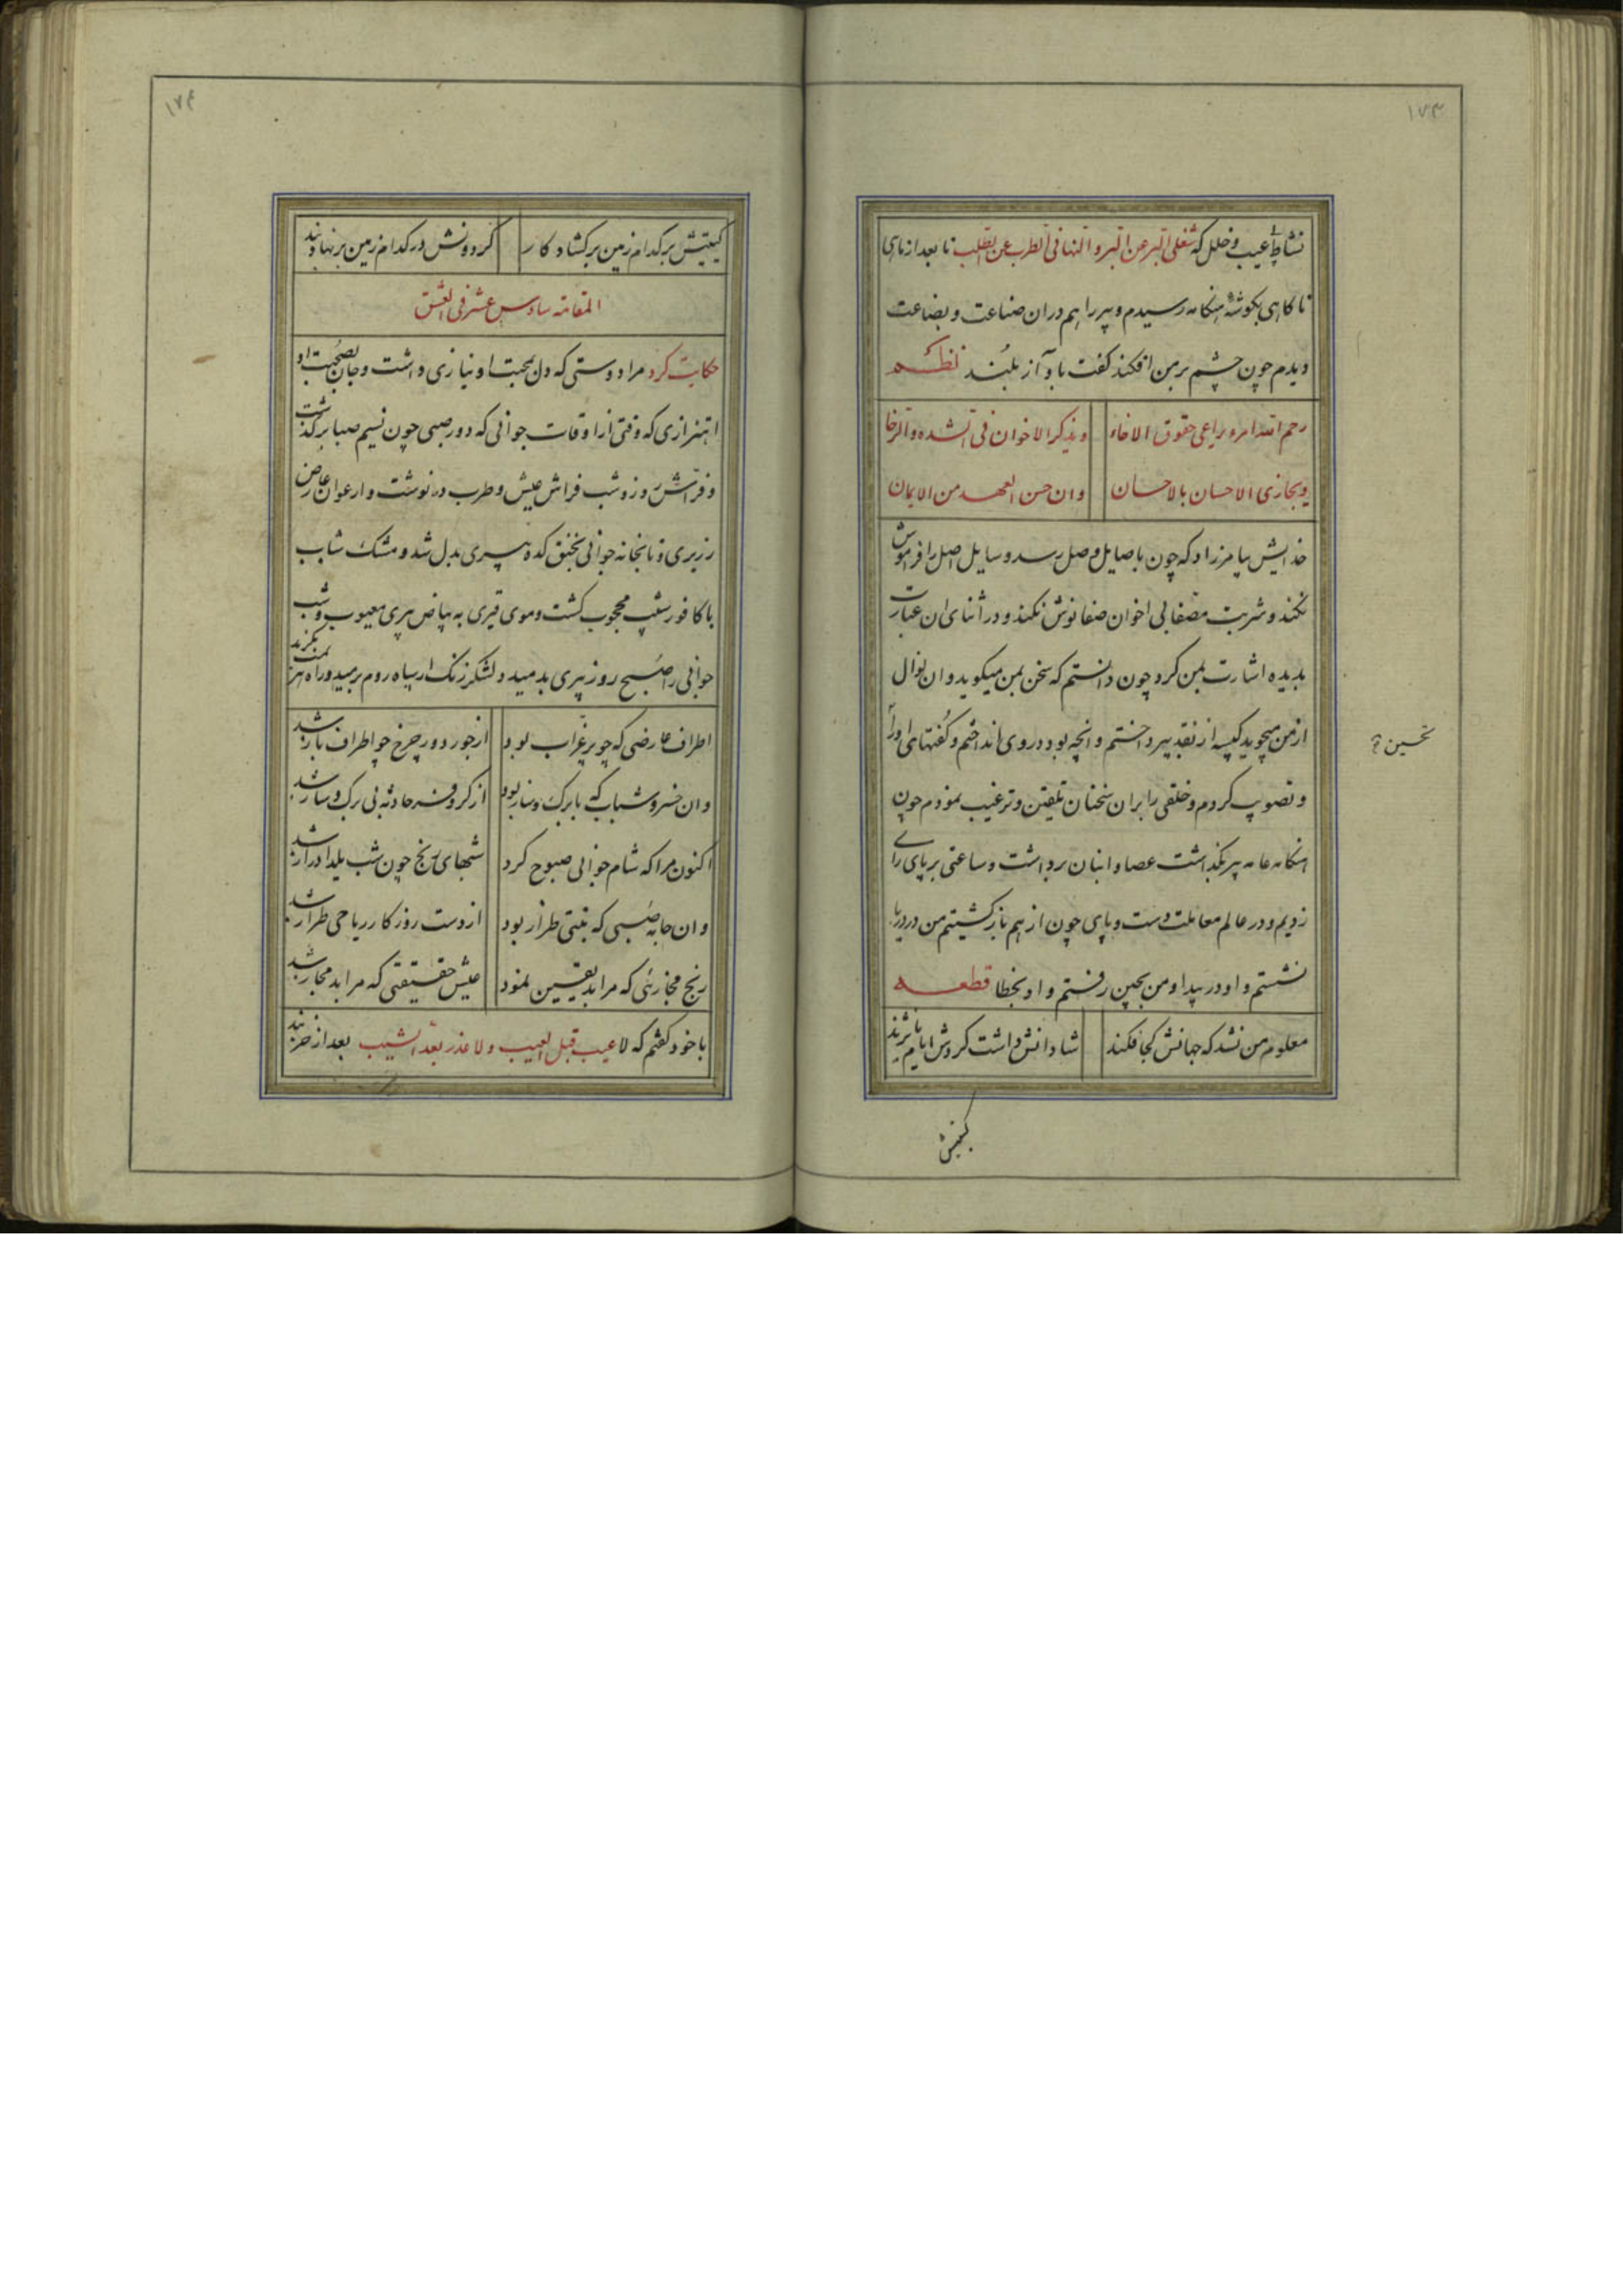 ۱۷۳
نشاط عیب و خلل که شغلی البر عن البر و النهانی الطرب عن الطلب تا بعد از ماهی
ناکاهی بکوشهٔ هنکامه رسیدم و پیر را هم دران صناعت و بضاعت
ویدم چون چشم بر من افکند کفت باواز بلند نظم
رحم الله امرء یراعی حقوق الاخاء
ویذکر الاخوان فی الشده والرخا
ویجازی الاحسان بالاحسان
وان حسن العهد من الایمان
خدایش بیامرزاد که چون باصایل وصل رسد وسایل اصل را فراموش
نکند و شربت مصفا بی اخوان صفا نوش نکند و در اثنای ان عبارت
بدیده اشارت بمن کرد چون دانستم که سخن بمن میکوید و ان نوال
از من میجوید کیسه از نقد بپرداختم و انچه بود در وی انداختم و کفتهای او را
تحسین
و تصویب کردم و خلقی را بران سخنان تلقین و ترغیب نمودم چون
هنکامه عامه پیر بکذاشت عصا و انبان برداشت و ساعتی بر پای رای
زدیم و در عالم معاملت دست و پای چون از هم باز کشتیم من در دریا
نشستم و او در بیدا و من بچین رفتم و او بخطا قطعه
معلوم من نشد که جهانش کجا فکند
شادانش داشت کردش ایام یا نژند
کیتیش
۱۷۴
کیتیش بر کدام زمین بر کشاد کار
کردونش در کدام زمین بر نهاد بند
المقامة سادس عشر فی العشق
حکایت کرد مرا دوستی که دل بمحبت او نیازی داشت و جان بصحبت او
اهتزازی که وقتی از اوقات جوانی که دور صبی چون نسیم صبا برکذشت
و فراش روز و شب فراش عیش و طرب در نوشت و ارغوان عارض
زریری و تابخانه جوانی بخنق کده پیری بدل شد و مشک شاب
با کافور شیب محجوب کشت و موی قیری به بیاض پیری معیوب و شب
جوانی را صبح روز پیری بدمید و لشکر زنک از سپاه روم برمید و راه هزیمت بکزید
اطراف عارضی که چو پر غراب بود
از جور دور چرخ چو اطراف باز شد
وان خسرو شباب که با برک و ساز بود
از کر و فر حادثه بی برک و ساز شد
اکنون مرا که شام جوانی صبوح کرد
شبهای رنج چون شب یلدا دراز شد
وان جامه صبی که بتبتی طراز بود
از دست روزکار ریاحی طراز شد
رنج مجازئی که مرا بد یقین نمود
عیش حقیقتی که مرا بد مجاز شد
با خود کفتم که لا عیب قبل العیب ولا عذر بعد الشیب بعد از